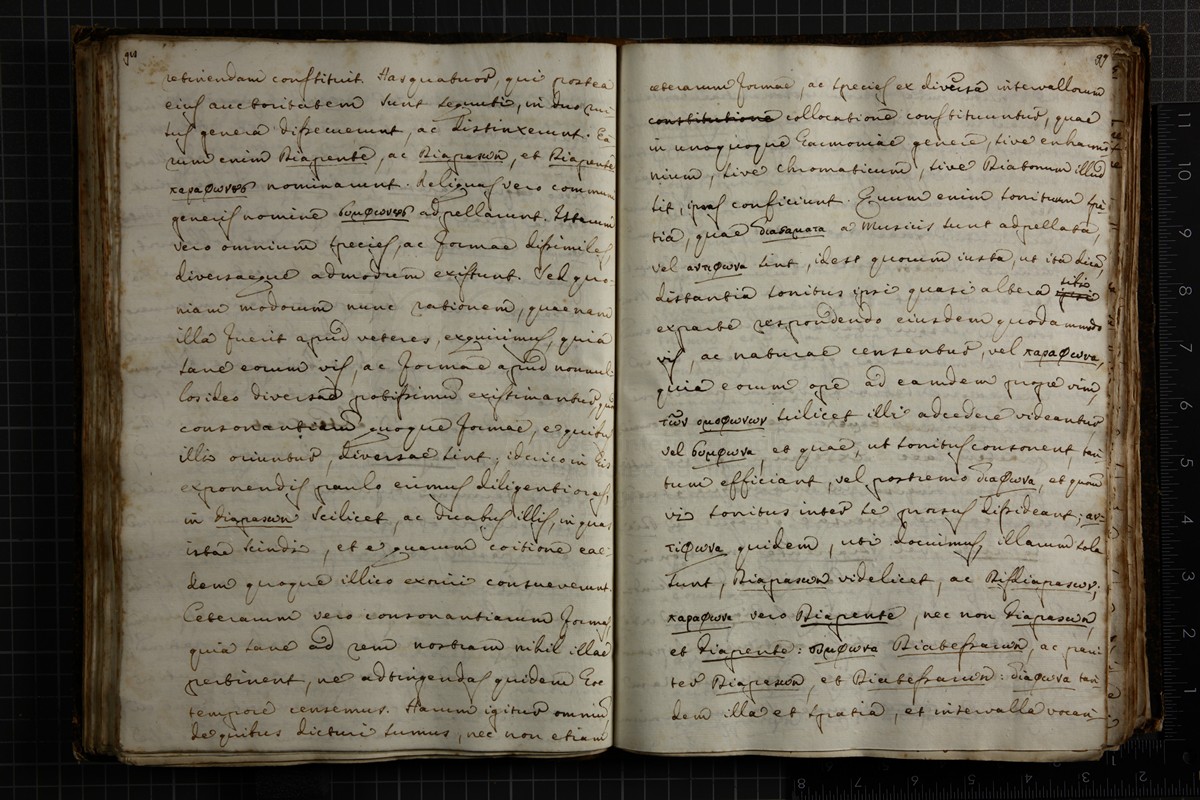 retinendam constituit. Has quatuor, qui postea
eius auctoritatem sunt sequuti, in duo rur-
sus genera dissecuerunt, ac distinxerunt. Ea-
rum enim Diapente, ac Diapason, et Diapente
παραφωνους nominarunt. Reliquas vero communi
generis nomine συμφωνους adpellarunt. Istarum
vero omnium species, ac formae dissimiles,
diversaeque admodum existunt. Sed quo-
niam modorum nunc rationem, quaenam
illa fuerit apud veteres, exquirimus, quia
sane eorum vis, ac formae apud nonnul-
los ideo diversae potissimum existimantur, quia
consonantiarum quoque formae, e quibus
illi oriuntur, diversae sint; idcirco in iis
exponendis paulo erimus diligentiores,
in diapason scilicet, ac duabus illis, in quas
ista scindi, et e quarum coitione ea-
dem quoque illico exoriri consueverunt.
Ceterarum vero consonantiarum formas,
quia sane ad rem nostram nihil illae
pertinent, ne adtingendas quidem hoc
tempore censemus. Harum igitur omnium,
de quibus dicturi sumus, nec non etiam
89
ceterarum formae, ac species ex diversa intervallorum
constitutione collocatione constituuntur, quae
in unoquoque Harmoniae genere, sive enharmo-
nium, sive chromaticum, sive Diatonum illud
sit, ipsas conficiunt. Quum enim sonituum spa-
tia, quae διαστηματα a Musicis sunt adpellata,
vel αντιφωνα sint, idest quorum iusta, ut ita dicam,
distantia sonitus ipsi quasi altera sibi
ex parte respondendo eiusdem quodammodo
vis, ac naturae censentur, vel παραφωνα,
quia eorum ope ad eamdem prope vim,
των ομοφωνων scilicet illi adcedere videantur
vel συμφωνα, et quae, ut sonitus consonent, tan-
tum efficiant, vel postremo διαφωνα, et quorum
vi sonitus inter se prorsus dissideant; αν-
τιφωνα quidem, uti docuimus, illarum sola
sunt, Diapason videlicet, ac Disdiapason;
παραφωνα vero Diapente, nec non Diapason,
et Diapente: συμφωνα Diatessaron, ac pari-
ter Diapason, et Diatessaron: διαφωνα tan-
dem illa et spatia, et intervalla vocari